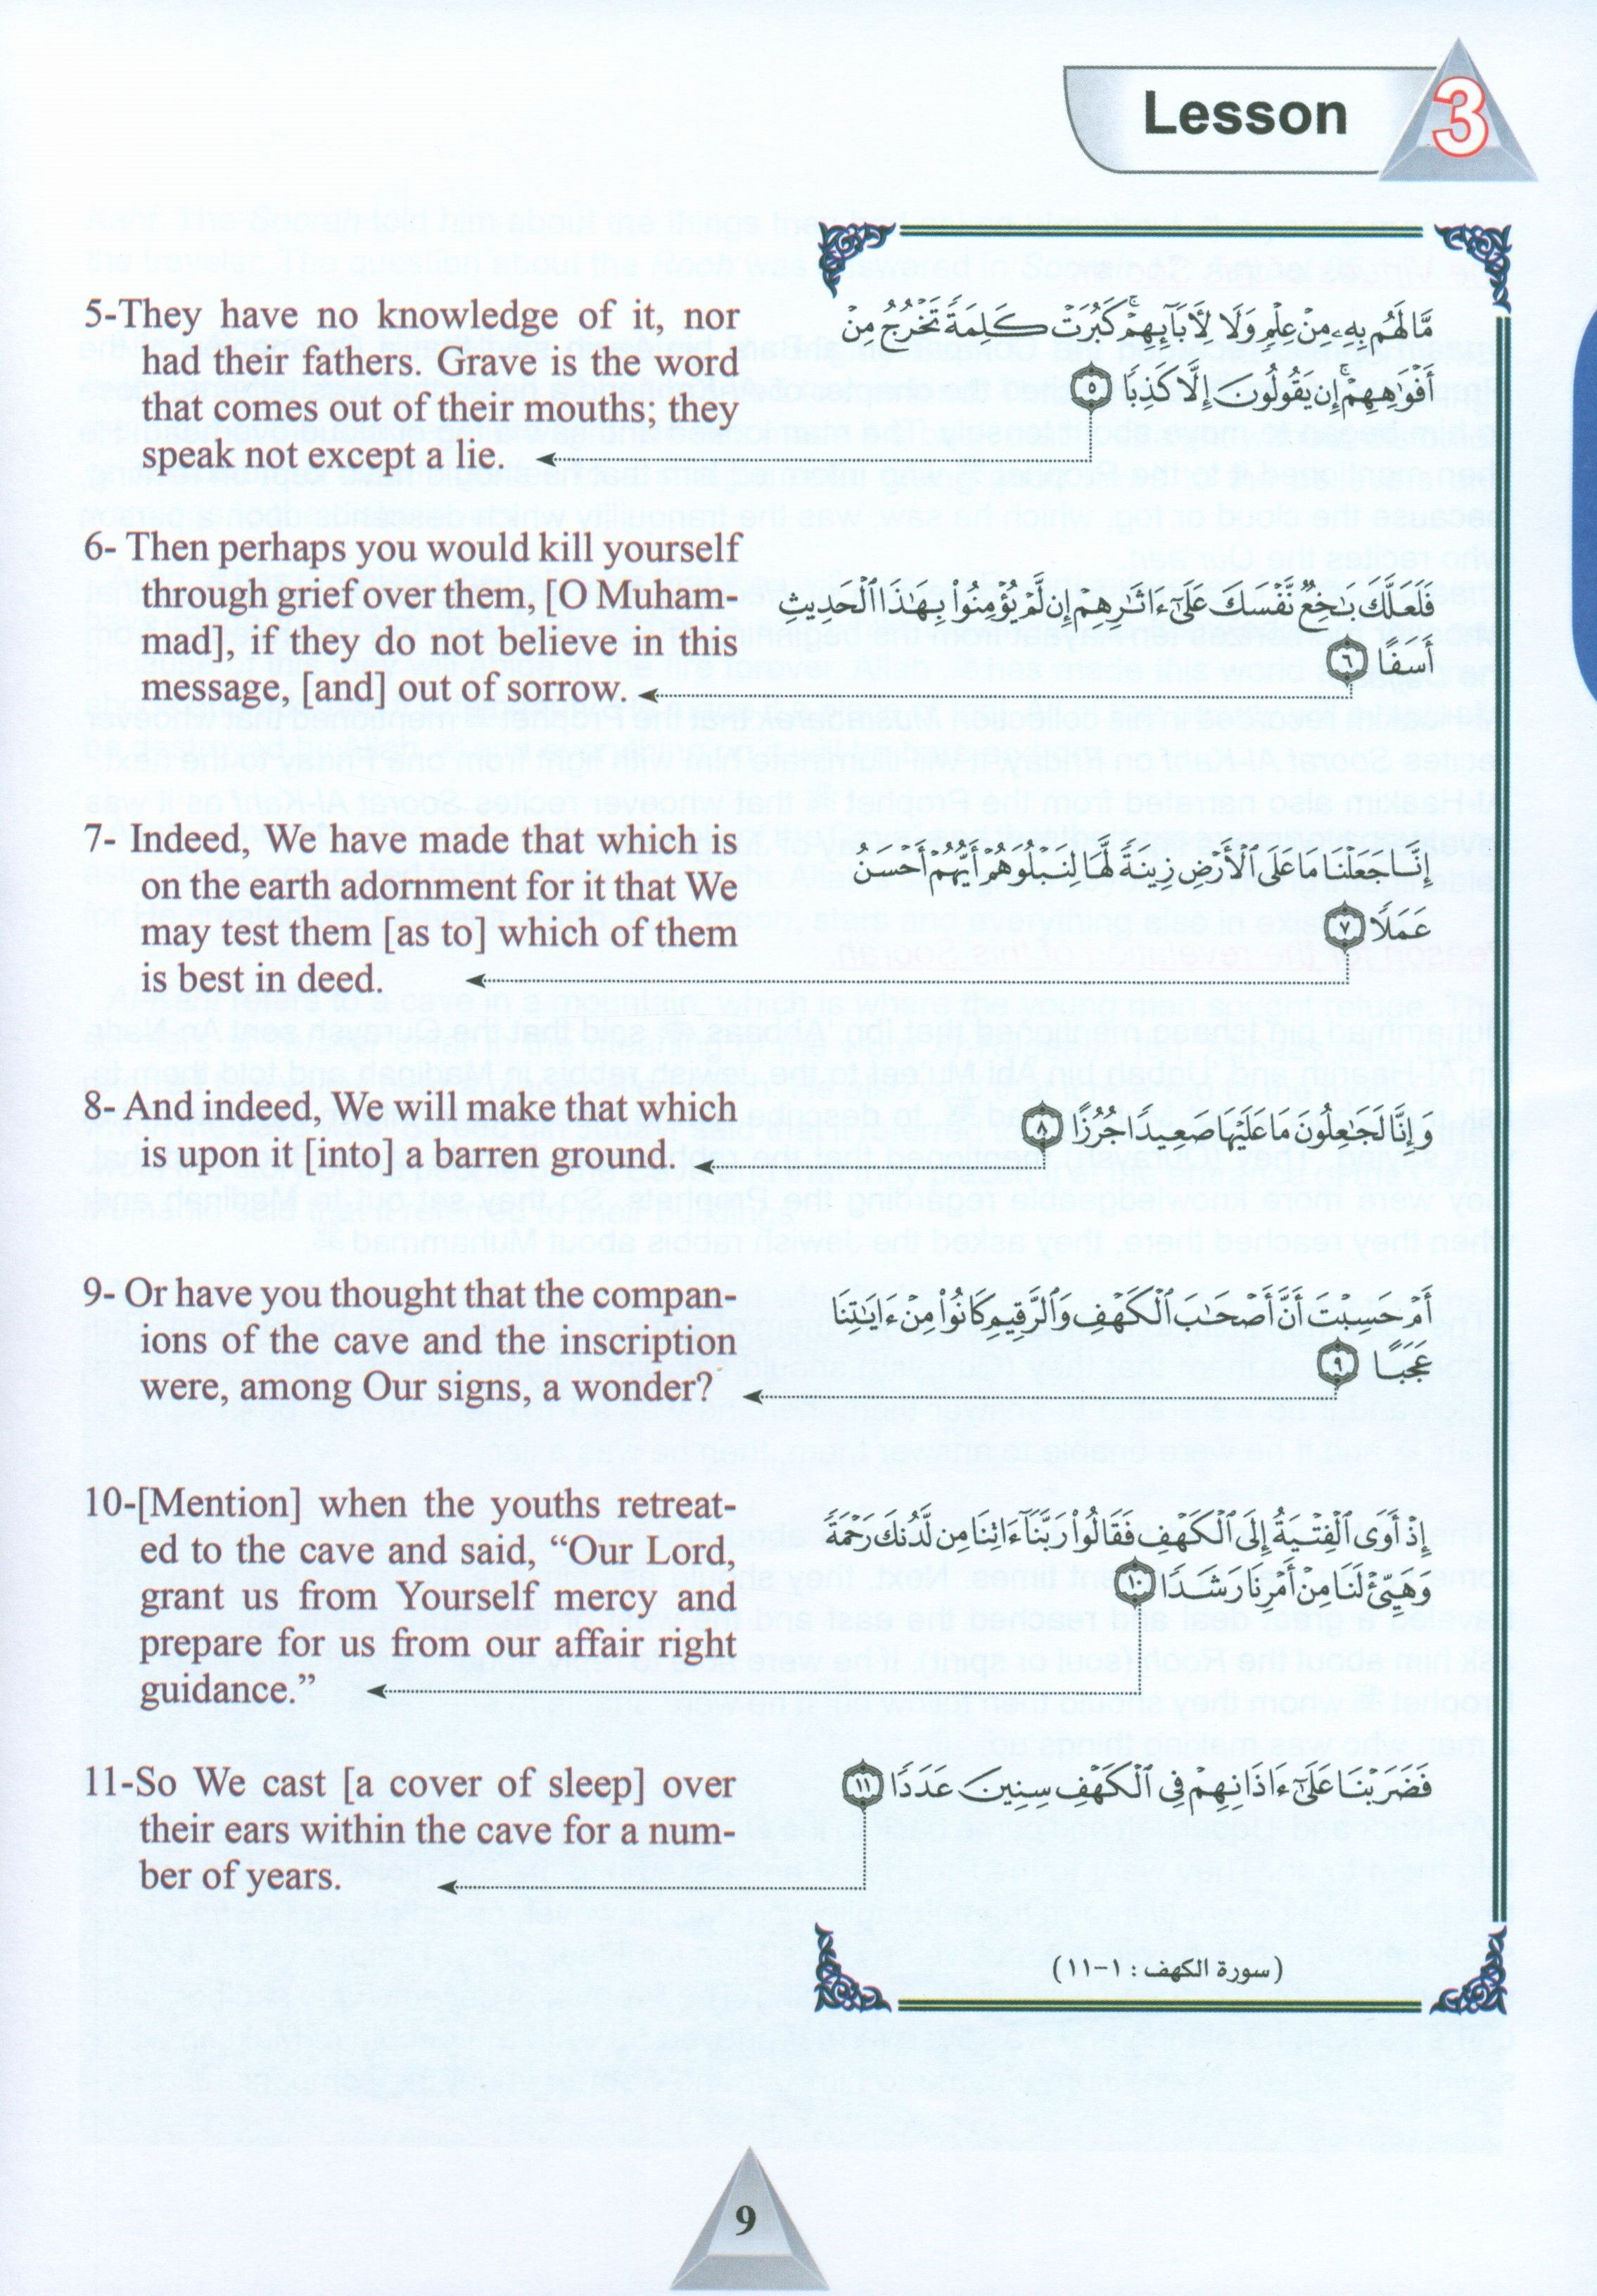 Lesson 3
5-They have no knowledge of it, nor
had their fathers. Grave is the word
that comes out of their mouths; they
speak not except a lie.
مَّا لَهُم بِهِۦ مِنْ عِلْمٍ وَلَا لِأَبَآئِهِمْ ۚ كَبُرَتْ كَلِمَةً تَخْرُجُ مِنْ
أَفْوَٰهِهِمْ ۚ إِن يَقُولُونَ إِلَّا كَذِبًا ٥
6- Then perhaps you would kill yourself
through grief over them, [O Muham-
mad], if they do not believe in this
message, [and] out of sorrow.
فَلَعَلَّكَ بَٰخِعٌ نَّفْسَكَ عَلَىٰٓ ءَاثَٰرِهِمْ إِن لَّمْ يُؤْمِنُوا۟ بِهَٰذَا ٱلْحَدِيثِ
أَسَفًا ٦
7- Indeed, We have made that which is
on the earth adornment for it that We
may test them [as to] which of them
is best in deed.
إِنَّا جَعَلْنَا مَا عَلَى ٱلْأَرْضِ زِينَةً لَّهَا لِنَبْلُوَهُمْ أَيُّهُمْ أَحْسَنُ
عَمَلًا ٧
8- And indeed, We will make that which
is upon it [into] a barren ground.
وَإِنَّا لَجَٰعِلُونَ مَا عَلَيْهَا صَعِيدًا جُرُزًا ٨
9- Or have you thought that the compan-
ions of the cave and the inscription
were, among Our signs, a wonder?
أَمْ حَسِبْتَ أَنَّ أَصْحَٰبَ ٱلْكَهْفِ وَٱلرَّقِيمِ كَانُوا۟ مِنْ ءَايَٰتِنَا
عَجَبًا ٩
10-[Mention] when the youths retreat-
ed to the cave and said, “Our Lord,
grant us from Yourself mercy and
prepare for us from our affair right
guidance.”
إِذْ أَوَى ٱلْفِتْيَةُ إِلَى ٱلْكَهْفِ فَقَالُوا۟ رَبَّنَآ ءَاتِنَا مِن لَّدُنكَ رَحْمَةً
وَهَيِّئْ لَنَا مِنْ أَمْرِنَا رَشَدًا ١٠
11-So We cast [a cover of sleep] over
their ears within the cave for a num-
ber of years.
فَضَرَبْنَا عَلَىٰٓ ءَاذَانِهِمْ فِى ٱلْكَهْفِ سِنِينَ عَدَدًا ١١
(سورة الكهف : ١-١١)
9